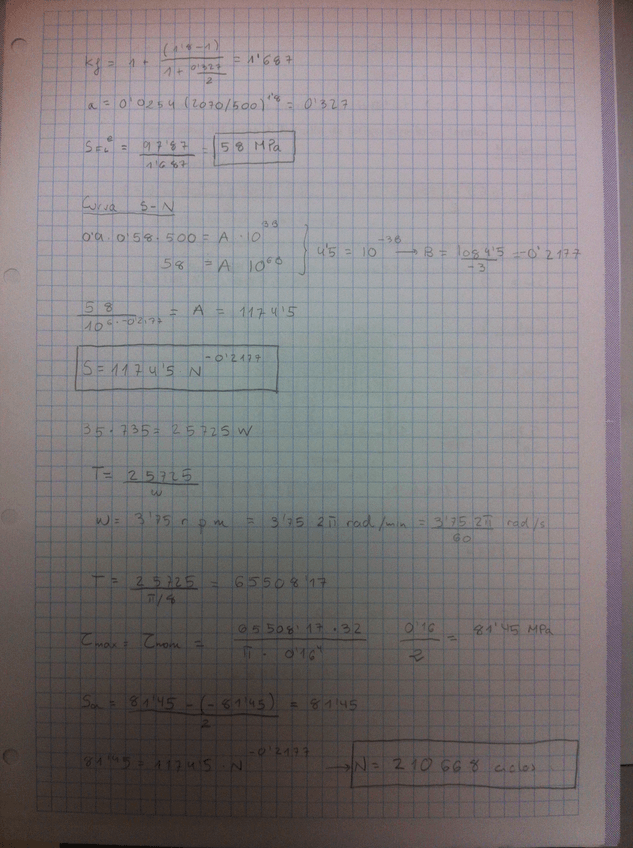 Kf = 1 + (1'8-1) / (1 + 0'327/2) = 1'687
a = 0'0254 (2070/500)^1'8 = 0'327
= 97'87 / 1'687 = 58 MPa
Curva S-N
0'9 · 0'58 · 500 = A · 10^3B
58 = A 10^6B
4'5 = 10^-3B → B = log 4'5 / -3 = -0'2177
58 / 10^6·-0'2177 = A = 1174'5
S = 1174'5 N^-0'2177
35 · 735 = 25725 W
T = 25725 / w
w = 3'75 rpm = 3'75 2π rad/min = 3'75 2π / 60 rad/s
T = 25725 / π/8 = 65508'17
τmax = τnom = 65508'17 · 32 / π · 0'16^4 0'16 / 2 = 81'45 MPa
Sa = 81'45 - (-81'45) / 2 = 81'45
81'45 = 1174'5 N^-0'2177 → N = 210668 ciclos